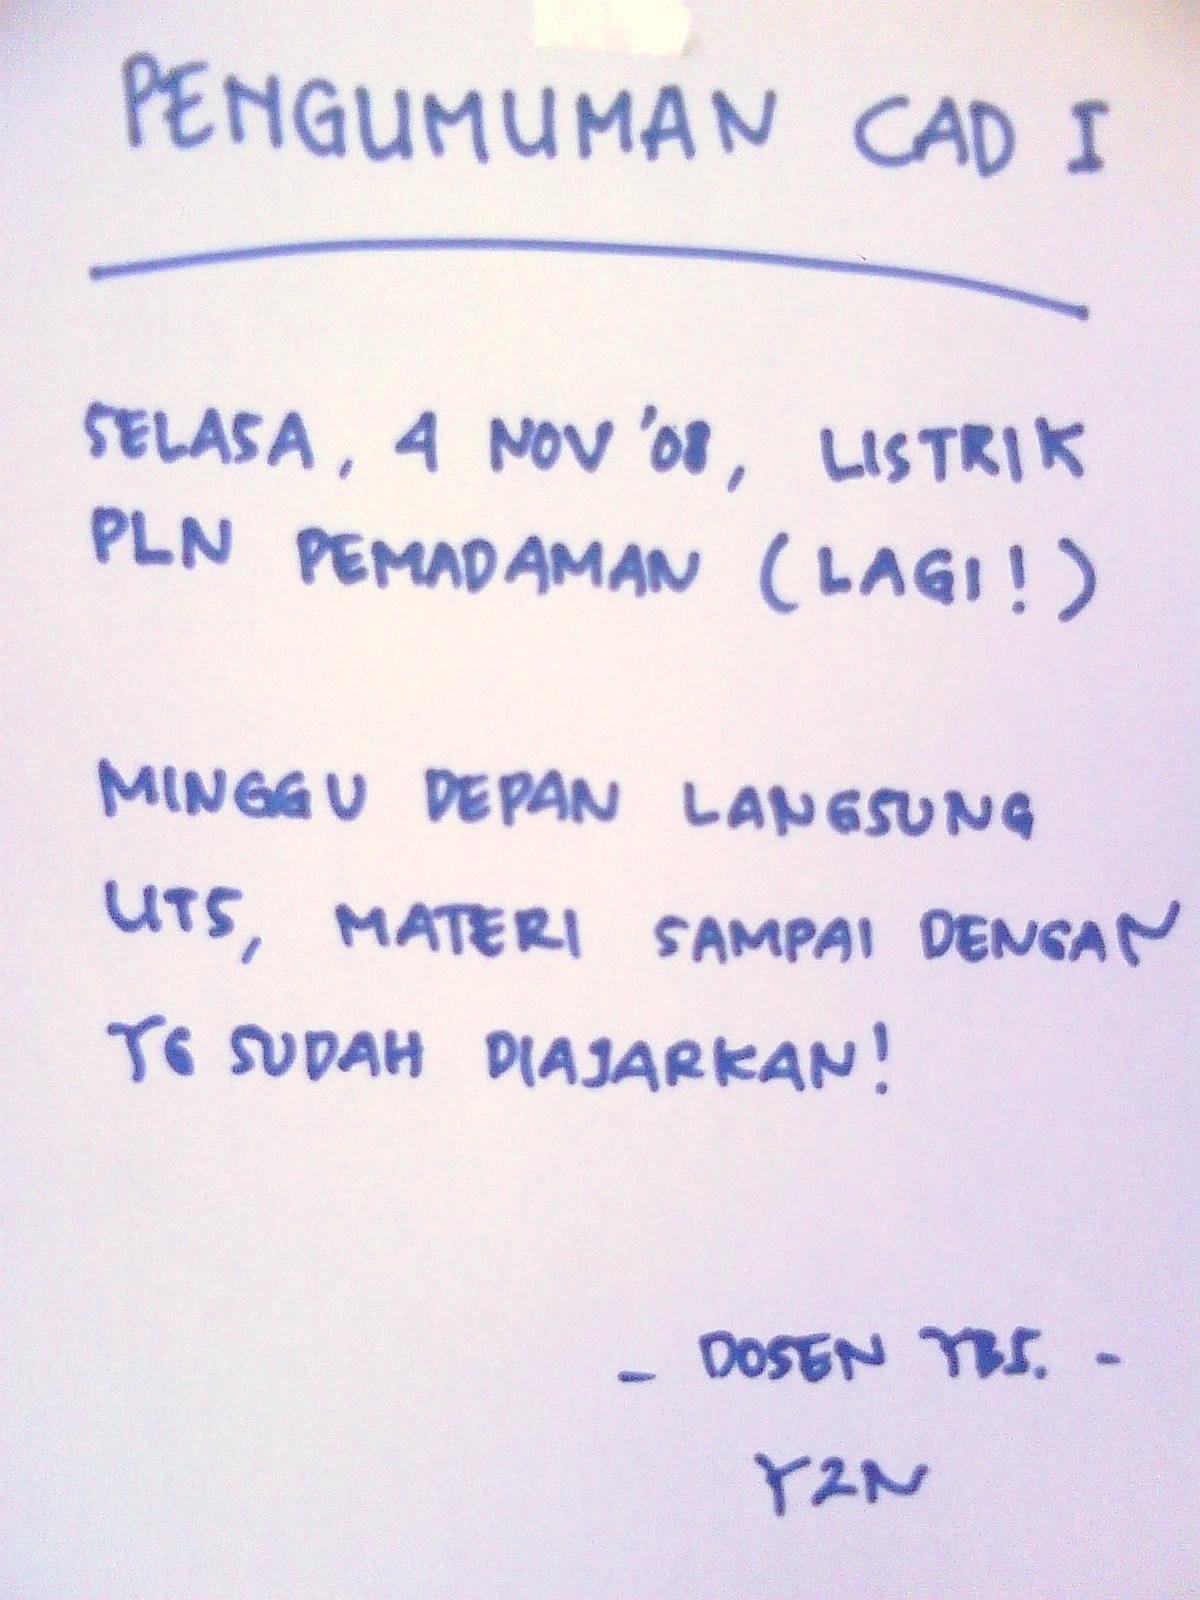 PENGUMUMAN CAD I
SELASA, 4 NOV '08, LISTRIK
PLN PEMADAMAN (LAGI!)
MINGGU DEPAN LANGSUNG
UTS, MATERI SAMPAI DENGAN
YG SUDAH DIAJARKAN!
- DOSEN YBS. -
Y2N